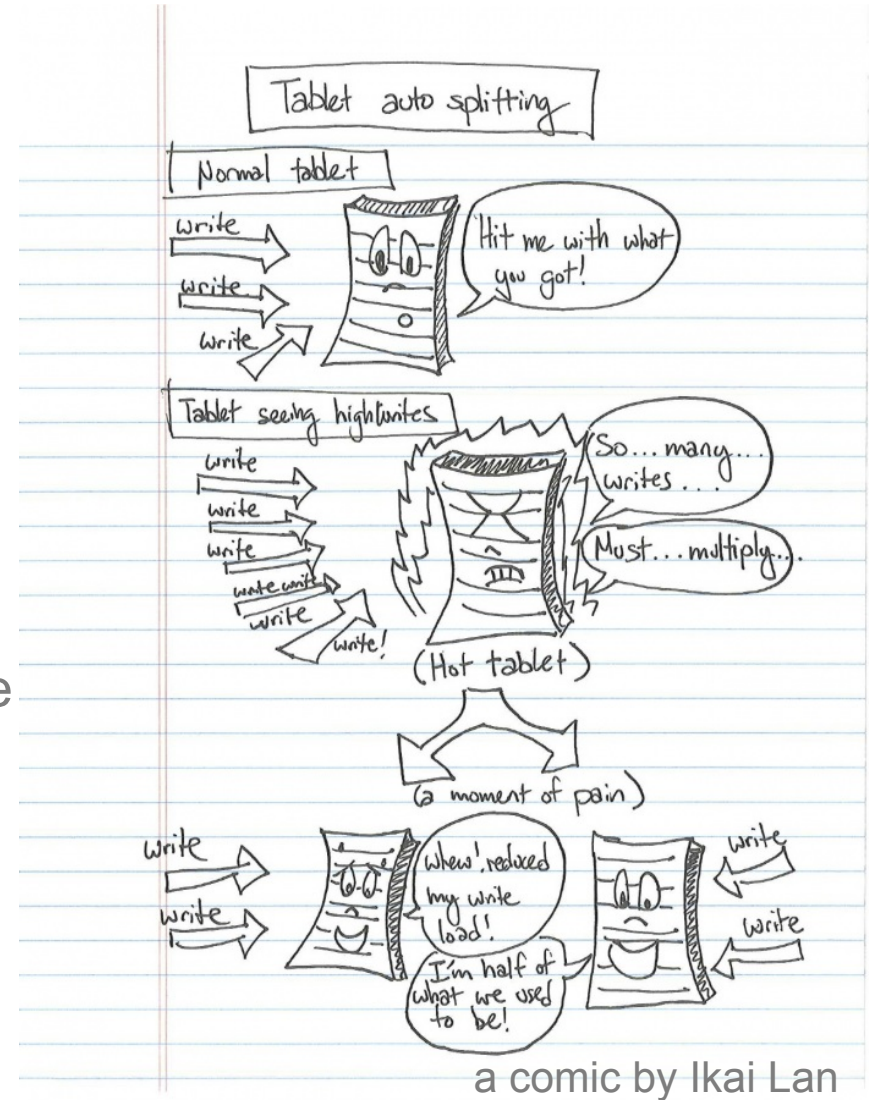 Tablet auto splitting
Normal tablet
write
write
write
Hit me with what
you got!
Tablet seeing high writes
write
write
write
write write
write
write!
So... many...
writes...
Must... multiply....
(Hot tablet)
e
(a moment of pain)
write
write
whew! reduced
my write
load!
I'm half of
what we used
to be!
write
write
a comic by Ikai Lan